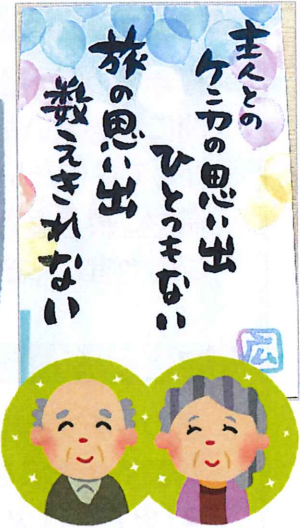 主人との
ケンカの思い出
ひとつもない
旅の思い出
数えきれない
広